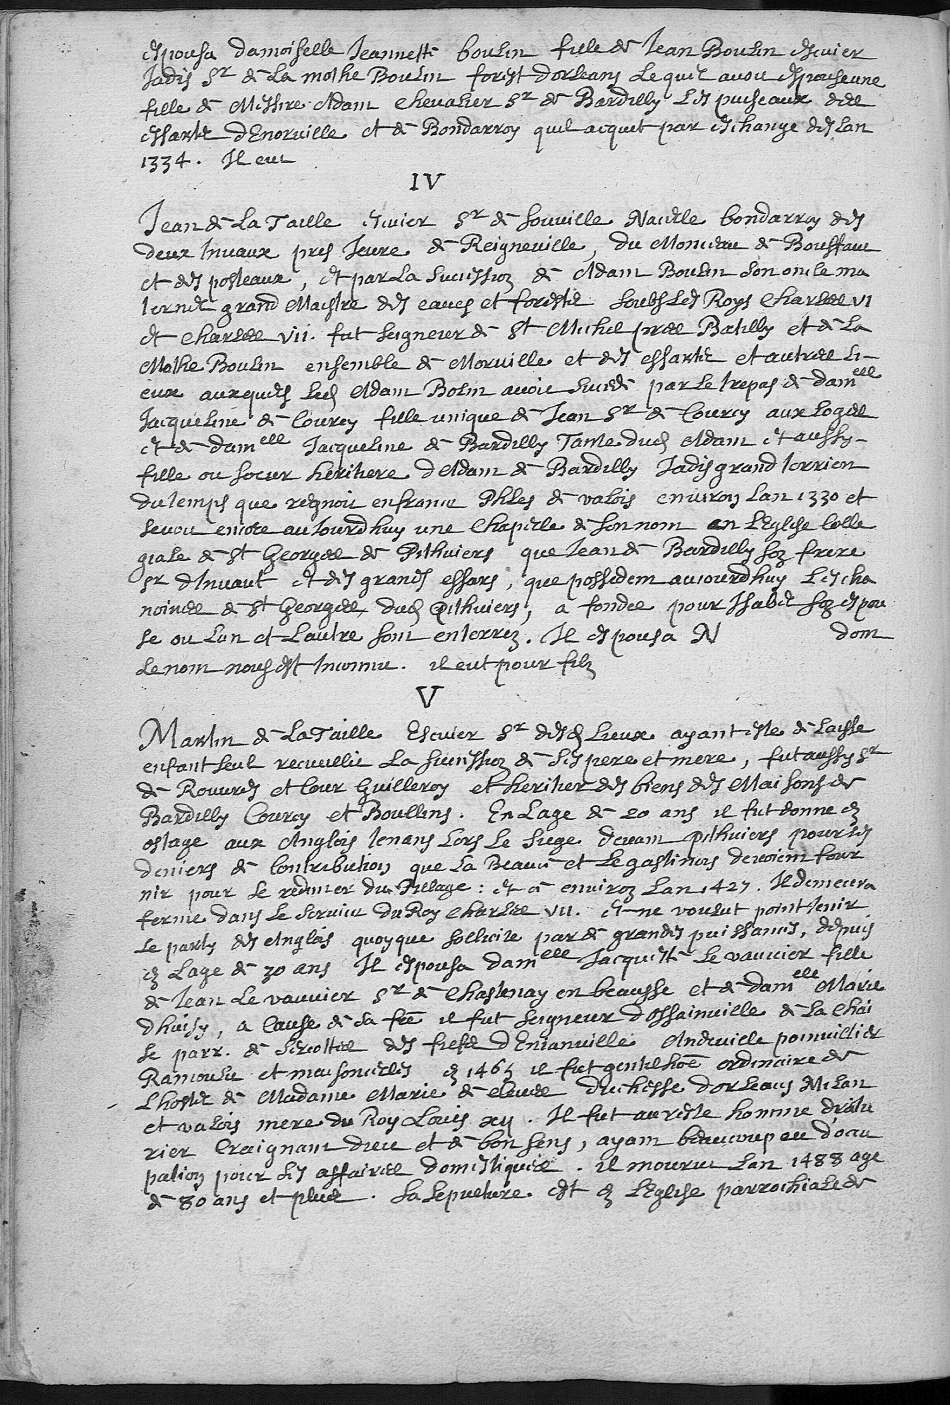 espousa damoiselle Jeannette boulin fille de Jean Boulin escuier
Jadis Sr de La mothe Boulin forest dorleans Lequel avoit espouse une
fille de Messire Adam Chevalier Sr de Bardilly Les puiseaux des
essarts dEnorville et de Bondarroy quil acquit par eschange des Lan
1334. Il eut
IV
Jean de La Taille escuier Sr de Souville Naville bondarroy des
deux Invaux pres Ieure de Reigneville, du Monceau de Bouffaut
et des posteaux, et par La succession de Adam Boulin son oncle ma
ternel grand Maistre des eaues et forests soubs Les Roys Charles VI
et Charles VII. fut seigneur de St Michel pres Batilly et de La
Mothe Boulin ensemble de Morville et des essarts et autres Li-
eux auxquels Led Adam Bolin avoit succede par Le trepas de damelle
Jacqueline de Courcy fille unique de Jean Sr de Courcy aux Loges
et de damelle Jacqueline de Bardilly Tante dud Adam et aussy-
fille ou soeur heritiere dAdam de Bardilly Jadis grand terrien
du temps que regnoit en france Philes de valois environ Lan 1330 et
se voit encore aujourdhuy une Chapelle de son nom en LEglise Colle
giale de St Georges de Pithuiers que Jean de Bardilly son frere
Sr dInvault et des grands essars, que possedent aujourdhuy Les cha
noines de St Georges dud Pithuiers, a fondee pour Isabel son espou
se ou Lun et Lautre sont enterrez. Il espousa N dont
Le nom nous est Inconnu. il eut pour filz
V
Martin de La Taille Escuier Sr desd Lieux ayant este de Laisse
enfant seul recueillit La succession de ses pere et mere, fut aussy Sr
de Rouvres et Cour Guilleroy et heritier des biens des Maisons de
Bardilly Courcy et Boullins. En Lage de 20 ans il fut donne en
ostage aux Anglois tenans Lors Le siege devant Pithuiers pour Les
deniers de Contribution que La Beauce et Le gastinois devoient four
nir pour se redimer du Pillage: et ce environ Lan 1427. Il demeura
ferme dans Le service du Roy Charles VII. et ne voulut point tenir
Le party des Anglois quoyque sollicite par de grandes puissances, depuis
en Lage de 30 ans Il espousa damelle Jacquette Le vauvier fille
de Jean Le vauvier Sr de Chastenay en beausse et de damelle Marie
dhuisy, a Cause de sa fe il fut seigneur dOssainville de La Chai
se parr. de des fiefs Andeville poinvillier
Ramoulu et maisoncelles en 1465 il fut gentilhoe ordinaire de
Lhostel de Madame Marie de Cleves Duchesse dorleans Milan
et valois mere du Roy Louis XII. Il fut au reste homme droitu
rier Craignant dieu et de bon sens, ayant beaucoup eu doccu
pation pour ses affaires domestiques. il mourut Lan 1488 age
de 80 ans et plus. Sa sepulture est en LEglise parrochiale de